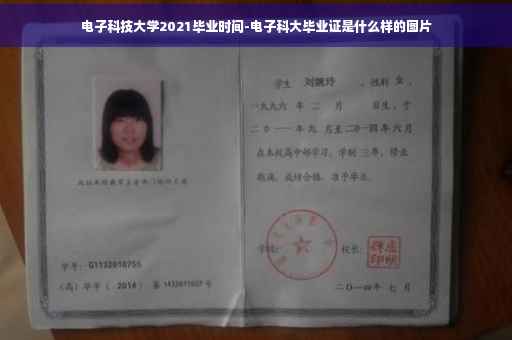 电子科技大学2021毕业时间-电子科大毕业证是什么样的图片
学生 刘婉玲 ，性别 女 ，
一九九六 年 二 月 日生，于
二〇一一年九 月至二〇一四年 六 月
在本校高中部学习，学制 三年，修业
期满，成绩合格，准予毕业。
学号： G1132010755
（高）毕字（ 2014 ）第 1432011027 号
学校：
校长：
二〇一四年 七 月